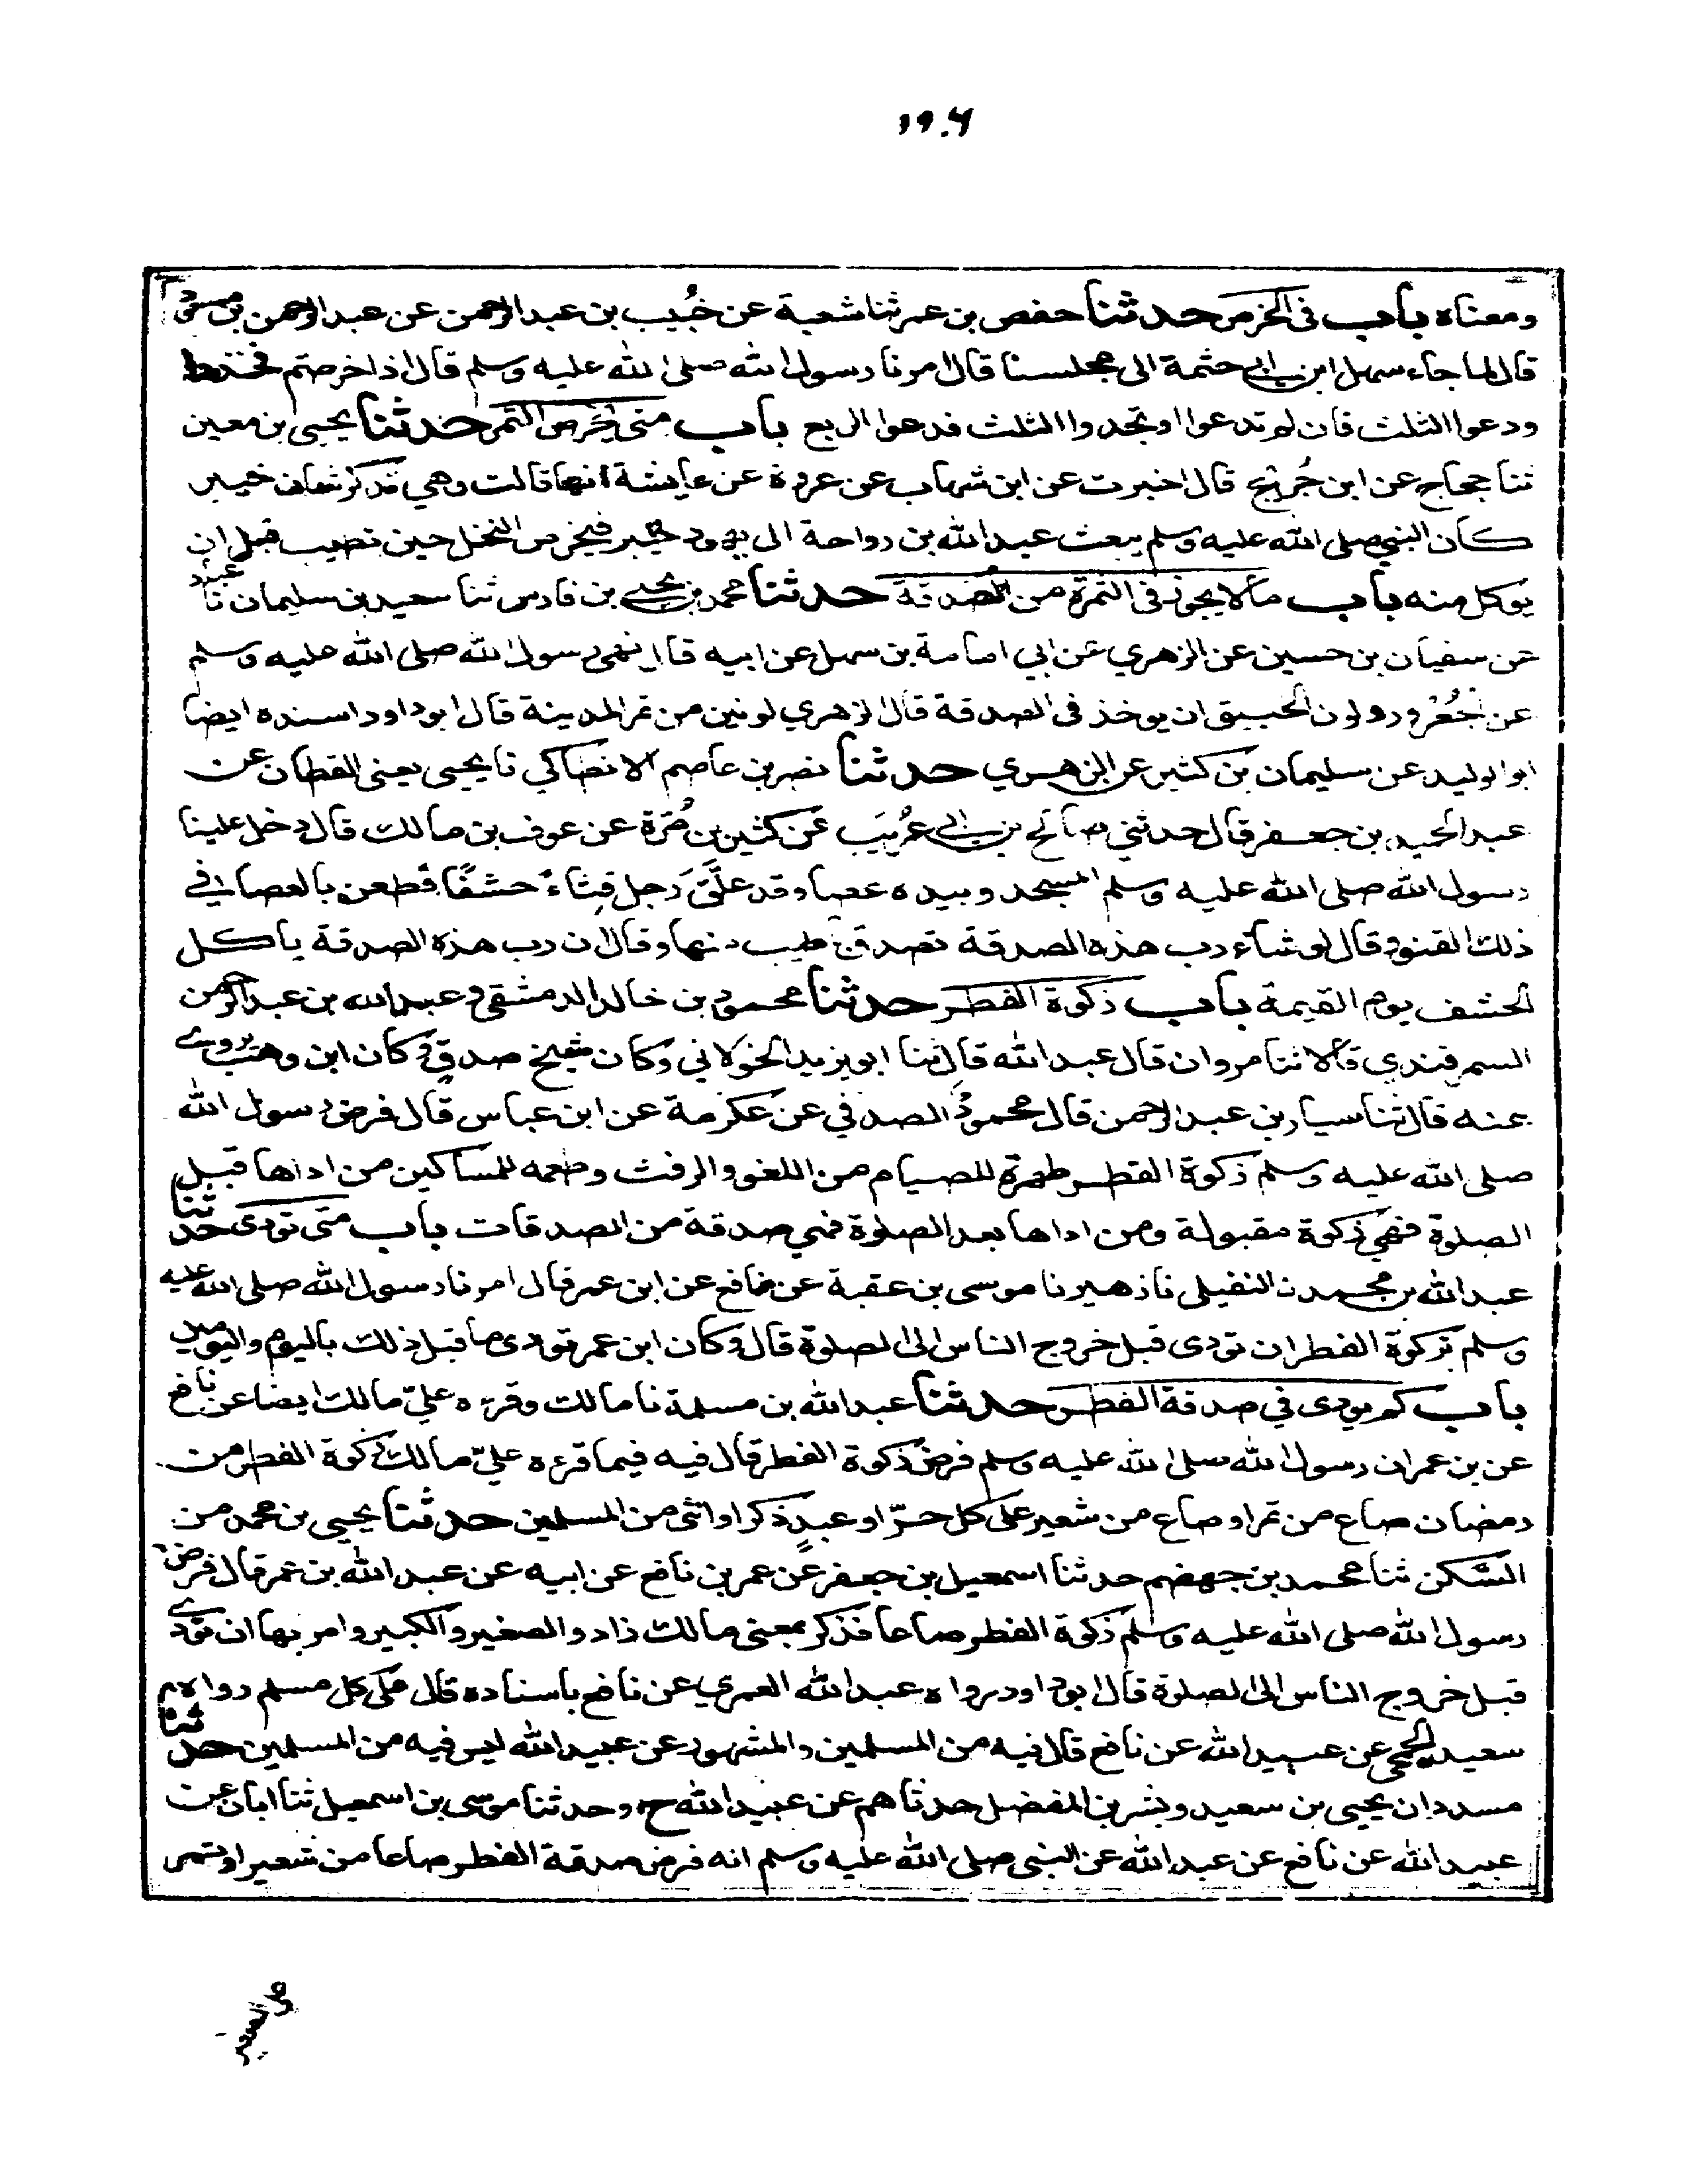 ومعناه باب في الخرص حدثنا حفص بن عمر ثنا شعبة عن خُبيب بن عبد الرحمن عن عبد الرحمن بن مسعود
قال لما جاء سهل ابن ابي حثمة الى مجلسنا قال امرنا رسول الله صلى الله عليه وسلم قال اذا خرصتم فخذوا
ودعوا الثلث فان لم تدعوا او تجدوا الثلث فدعوا الربع باب متى يخرص التمر حدثنا يحيى بن معين
ثنا حجاج عن ابن جُريج قال اخبرت عن ابن شهاب عن عروة عن عايشة انها قالت وهي تذكر شان خيبر
كان النبي صلى الله عليه وسلم يبعث عبد الله بن رواحة الى يهود خيبر فيخرص النخل حين تطيب قبل ان
يوكل منه باب ما لا يجوز في الثمرة من الصدقة حدثنا محمد بن يحيى بن فارس ثنا سعيد بن سليمان نا عباد
عن سفيان بن حسين عن الزهري عن ابي امامة بن سهل عن ابيه قال نهى رسول الله صلى الله عليه وسلم
عن الجُعْرور ولون الحبيق ان يوخذ في الصدقة قال الزهري لونين من تمر المدينة قال ابو داود اسنده ايضا
ابو الوليد عن سليمان بن كثير عن الزهري حدثنا نصر بن عاصم الانطاكي نا يحيى يعنى القطان عن
عبد الحميد بن جعفر قال حدثني صالح بن ابي عُرَيب عن كثير بن مُرة عن عوف بن مالك قال دخل علينا
رسول الله صلى الله عليه وسلم المسجد وبيده عصا وقد علَّق رجل قِناءً حشفًا فطعن بالعصا في
ذلك القنو وقال لو شاء رب هذه الصدقة تصدق طيب منها وقال ان رب هذه الصدقة ياكل
الحشف يوم القيمة باب زكوة الفطر حدثنا محمود بن خالد الدمشقي وعبد الله بن عبد الرحمن
السمرقندي قالا ثنا مروان قال عبد الله قال ثنا ابو يزيد الخولاني وكان شيخ صدقٍ وكان ابن وهب يروي
عنه قال ثنا سيار بن عبد الرحمن قال محمودٌ الصدفي عن عكرمة عن ابن عباس قال فرض رسول الله
صلى الله عليه وسلم زكوة الفطر طهرة للصيام من اللغو والرفث وطعمه للمساكين من اداها قبل
الصلوة فهي زكوة مقبولة ومن اداها بعد الصلوة فهي صدقة من الصدقات باب متى تودى حدثنا
عبد الله بن محمد النفيلي نا زهير نا موسى بن عقبة عن نافع عن ابن عمر قال امرنا رسول الله صلى الله عليه
وسلم بزكوة الفطر ان تودى قبل خروج الناس الى الصلوة قال وكان ابن عمر يودى ما قبل ذلك باليوم واليومين
باب كم يودى في صدقة الفطر حدثنا عبد الله بن مسلمة نا مالك وقره علىّ مالك ايضا عن نافع
عن بن عمر ان رسول الله صلى الله عليه وسلم فرض زكوة الفطر قال فيه فيما قره علىّ مالك زكوة الفطر من
رمضان صاع من تمر او صاع من شعير على كل حرّ او عبدٍ ذكر او انثى من المسلمين حدثنا يحيى بن محمد من
السّكن ثنا محمد بن جهضم حدثنا اسمعيل بن جعفر عن عمر بن نافع عن ابيه عن عبد الله بن عمر قال فرض
رسول الله صلى الله عليه وسلم زكوة الفطر صاعا فذكر بمعنى مالك زاد والصغير والكبير وامر بها ان تودى
قبل خروج الناس الى الصلوة قال ابو داود رواه عبد الله العمري عن نافع باسناده قال على كل مسلم رواه
سعيد الجمحي عن عبيد الله عن نافع قال فيه من المسلمين والمشهور عن عبيد الله ليس فيه من المسلمين حدثنا
مسدد ان يحيى بن سعيد وبشر بن المفضل حدثاهم عن عبيد الله ح وحدثنا موسى بن اسمعيل ثنا ابان عن
عبيد الله عن نافع عن عبد الله عن النبي صلى الله عليه وسلم انه فرض صدقة الفطر صاعا من شعير او تمر